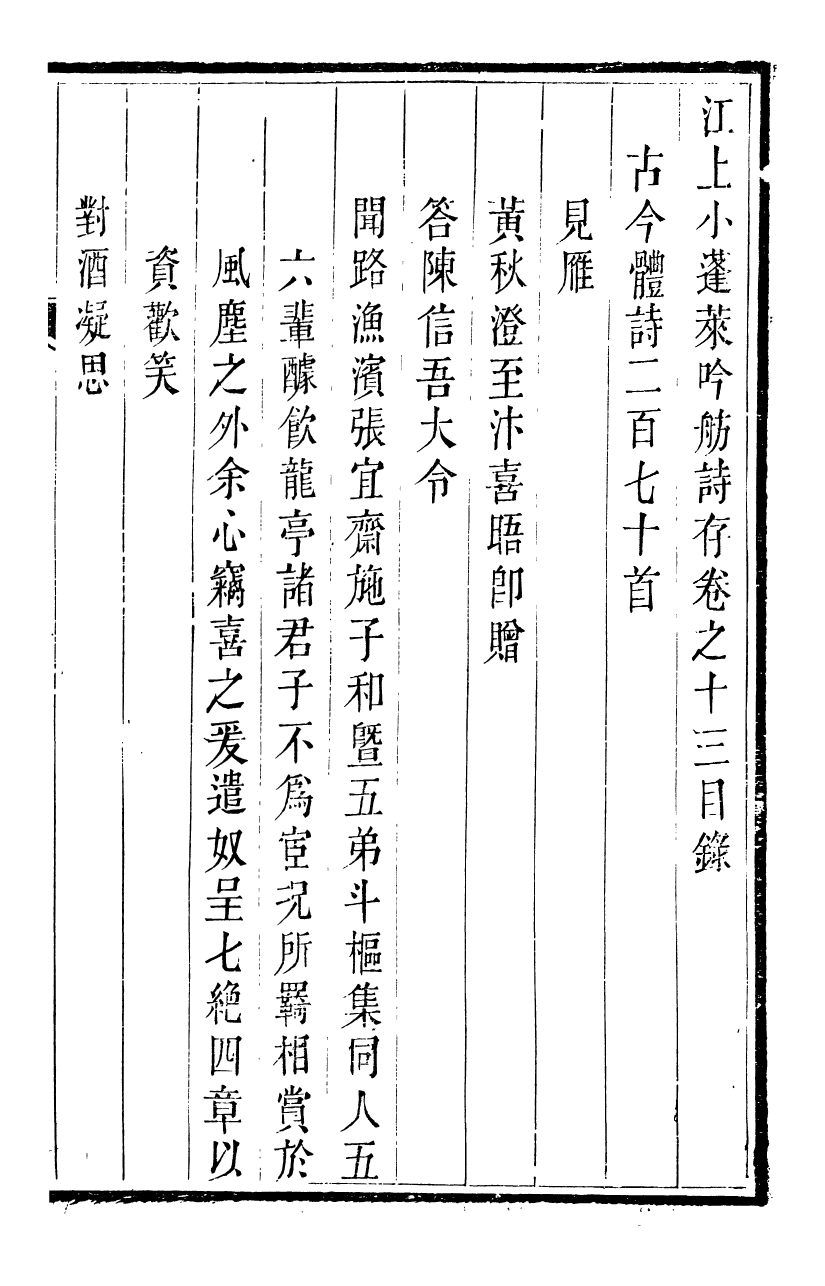 江上小蓬萊吟舫詩存卷之十三目錄
古今體詩二百七十首
見雁
黃秋澄至汴喜晤卽贈
答陳信吾大令
聞路漁濱張宜齋施子和曁五弟斗樞集同人五
六輩醵飲龍亭諸君子不爲宦况所羈相賞於
風塵之外余心竊喜之爰遣奴呈七絶四章以
資歡笑
對酒凝思